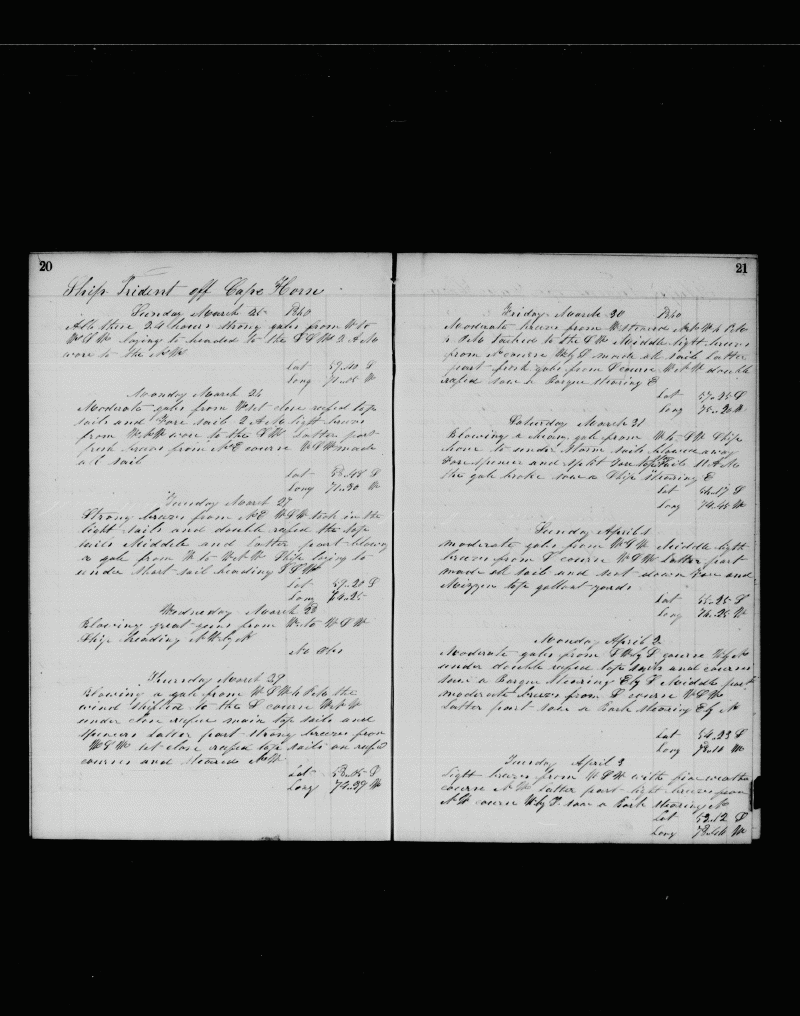 20
Ship Trident off Cape Horn
Sunday March 25 1860
All these 24 hours strong gales from W to
WSW laying to headed to the SSW 2 A.M.
wore to the NW
Lat 57..40 S
Long 71..45 W
Monday March 26
Moderate gales from W let close reefed top
sails and Fore sail 2 A.M. light breeze
from WNW wore to the SW Latter part
fresh breeze from N.E course WSW made
all sail
Lat 58..48 S
Long 71..30 W
Tuesday March 27
Strong breeze from NE WSW took in the
light sails and double reefed the top
sails Middle and Latter part blowing
a gale from W to WNW Ship laying to
under short sail heading SSW
Lat 59..20 S
Long 74..25
Wednesday March 28
Blowing great guns from W to WSW
Ship heading NW by N
No Obs
Thursday March 29
Blowing a gale from WSW 4 P.M. the
wind shifted to the S course WNW
under close reefed main top sails and
spencers Latter part strong breeze from
WSW let close reefed top sails on reefed
courses and steered NW
Lat 58..15 S
Long 74..29 W
21
Friday March 30 1860
Moderate breeze from W steered NNW 4 P.M.
tacked to the SW Middle light breeze
from N course W by S made all sail Latter
part fresh gale from S course WNW double
reefed saw a Barque steering E
Lat 57..25 S
Long 75..20 W
Saturday March 31
Blowing a heavy gale from W to SW Ship
hove to under Storm sails blowed away
Fore spencer and split Fore top Sails 11 A.M.
the gale broke saw a Ship steering E
Lat 56..17 S
Long 74..45 W
Sunday April 1
moderate gale from WSW Middle light
breeze from S course WSW Latter part
made all sail and sent down Fore and
Mizzen top gallant yards
Lat 55..25 S
Long 76..25 W
Monday April 2
Moderate gales from SW by S course W by N
under double reefed top sails and courses
saw a Barque Steering E by S Middle part
moderate breeze from S course WSW
Latter part saw a Bark steering E by N
Lat 54..23 S
Long 78..10 W
Tuesday April 3
Light breeze from WSW with fine weather
course NW Latter part light breeze from
NW course W by S saw a Bark steering N
Lat 52..12 S
Long 78..44 W